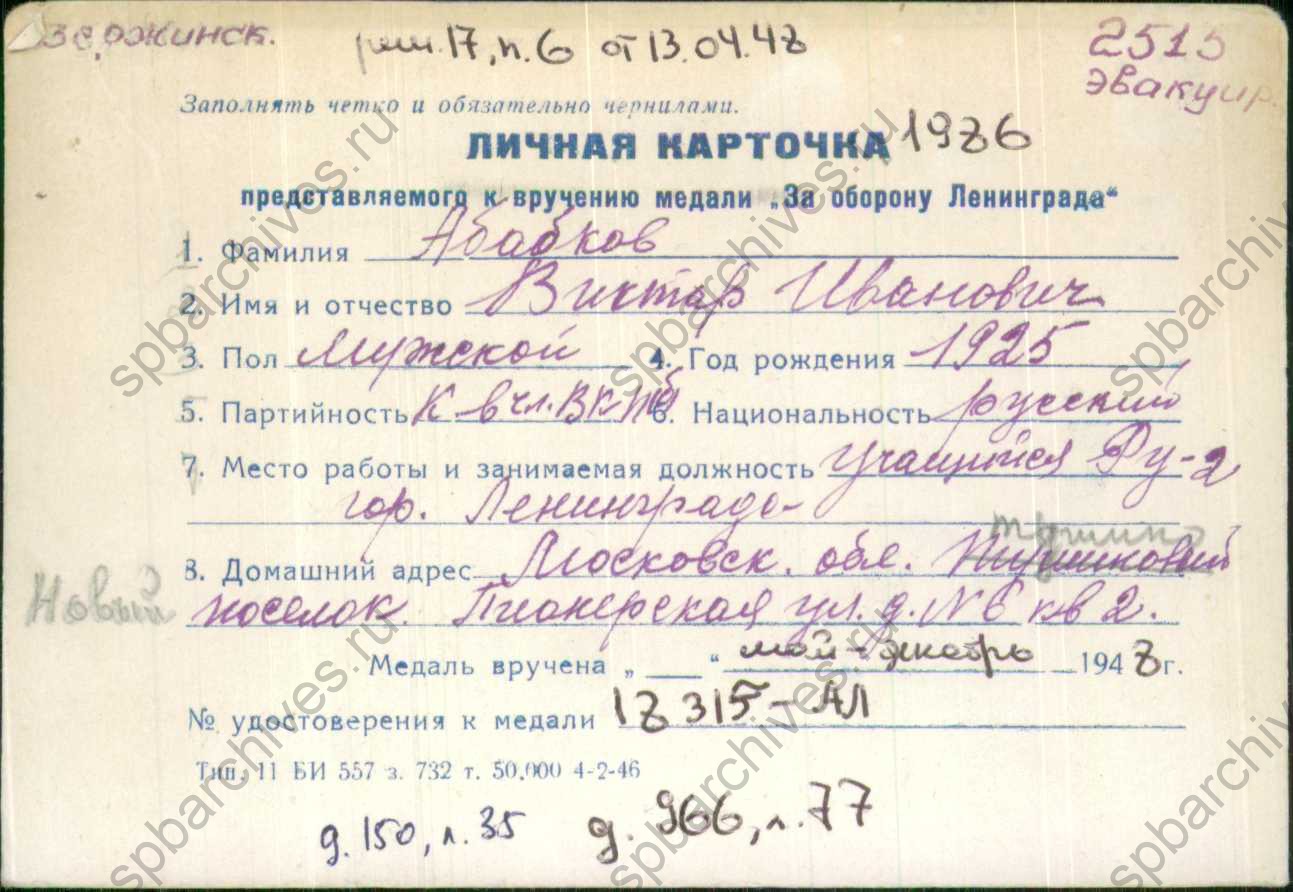 Дзержинск. реш. 17, п. 6 от 13.04.48 2515
эвакуир.
Заполнять четко и обязательно чернилами.
ЛИЧНАЯ КАРТОЧКА 1986
представляемого к вручению медали „За оборону Ленинграда“
1. Фамилия Абабков
2. Имя и отчество Виктар Иванович
3. Пол Мужской 4. Год рождения 1925
5. Партийность К в чл. ВКПб 6. Национальность русский
7. Место работы и занимаемая должность Учащийся Ру-2
гор. Ленинграда
тушино
8. Домашний адрес Московск. обл.
Новый поселок. Пионерская ул. д. № 6 кв 2.
Медаль вручена „ “ май-декабрь 1948 г.
№ удостоверения к медали 18315-АЛ
Тип. 11 БИ 557 з. 732 т. 50.000 4-2-46
д. 150, л. 35 д. 966, л. 77
spbarchives.ru